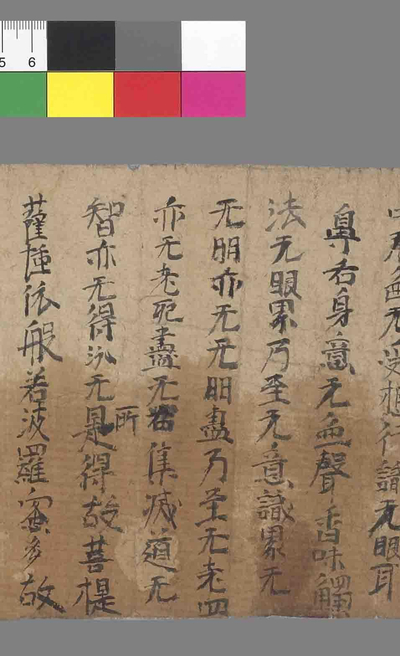 5 6
中无色无受想行識无眼耳
鼻舌身意无色聲香味觸
法无眼界乃至无意識界无
无明亦无无明盡乃至无老四
亦无老死盡无苦集滅道无
智亦无得以无所是得故菩提
薩埵依般若波羅蜜多故